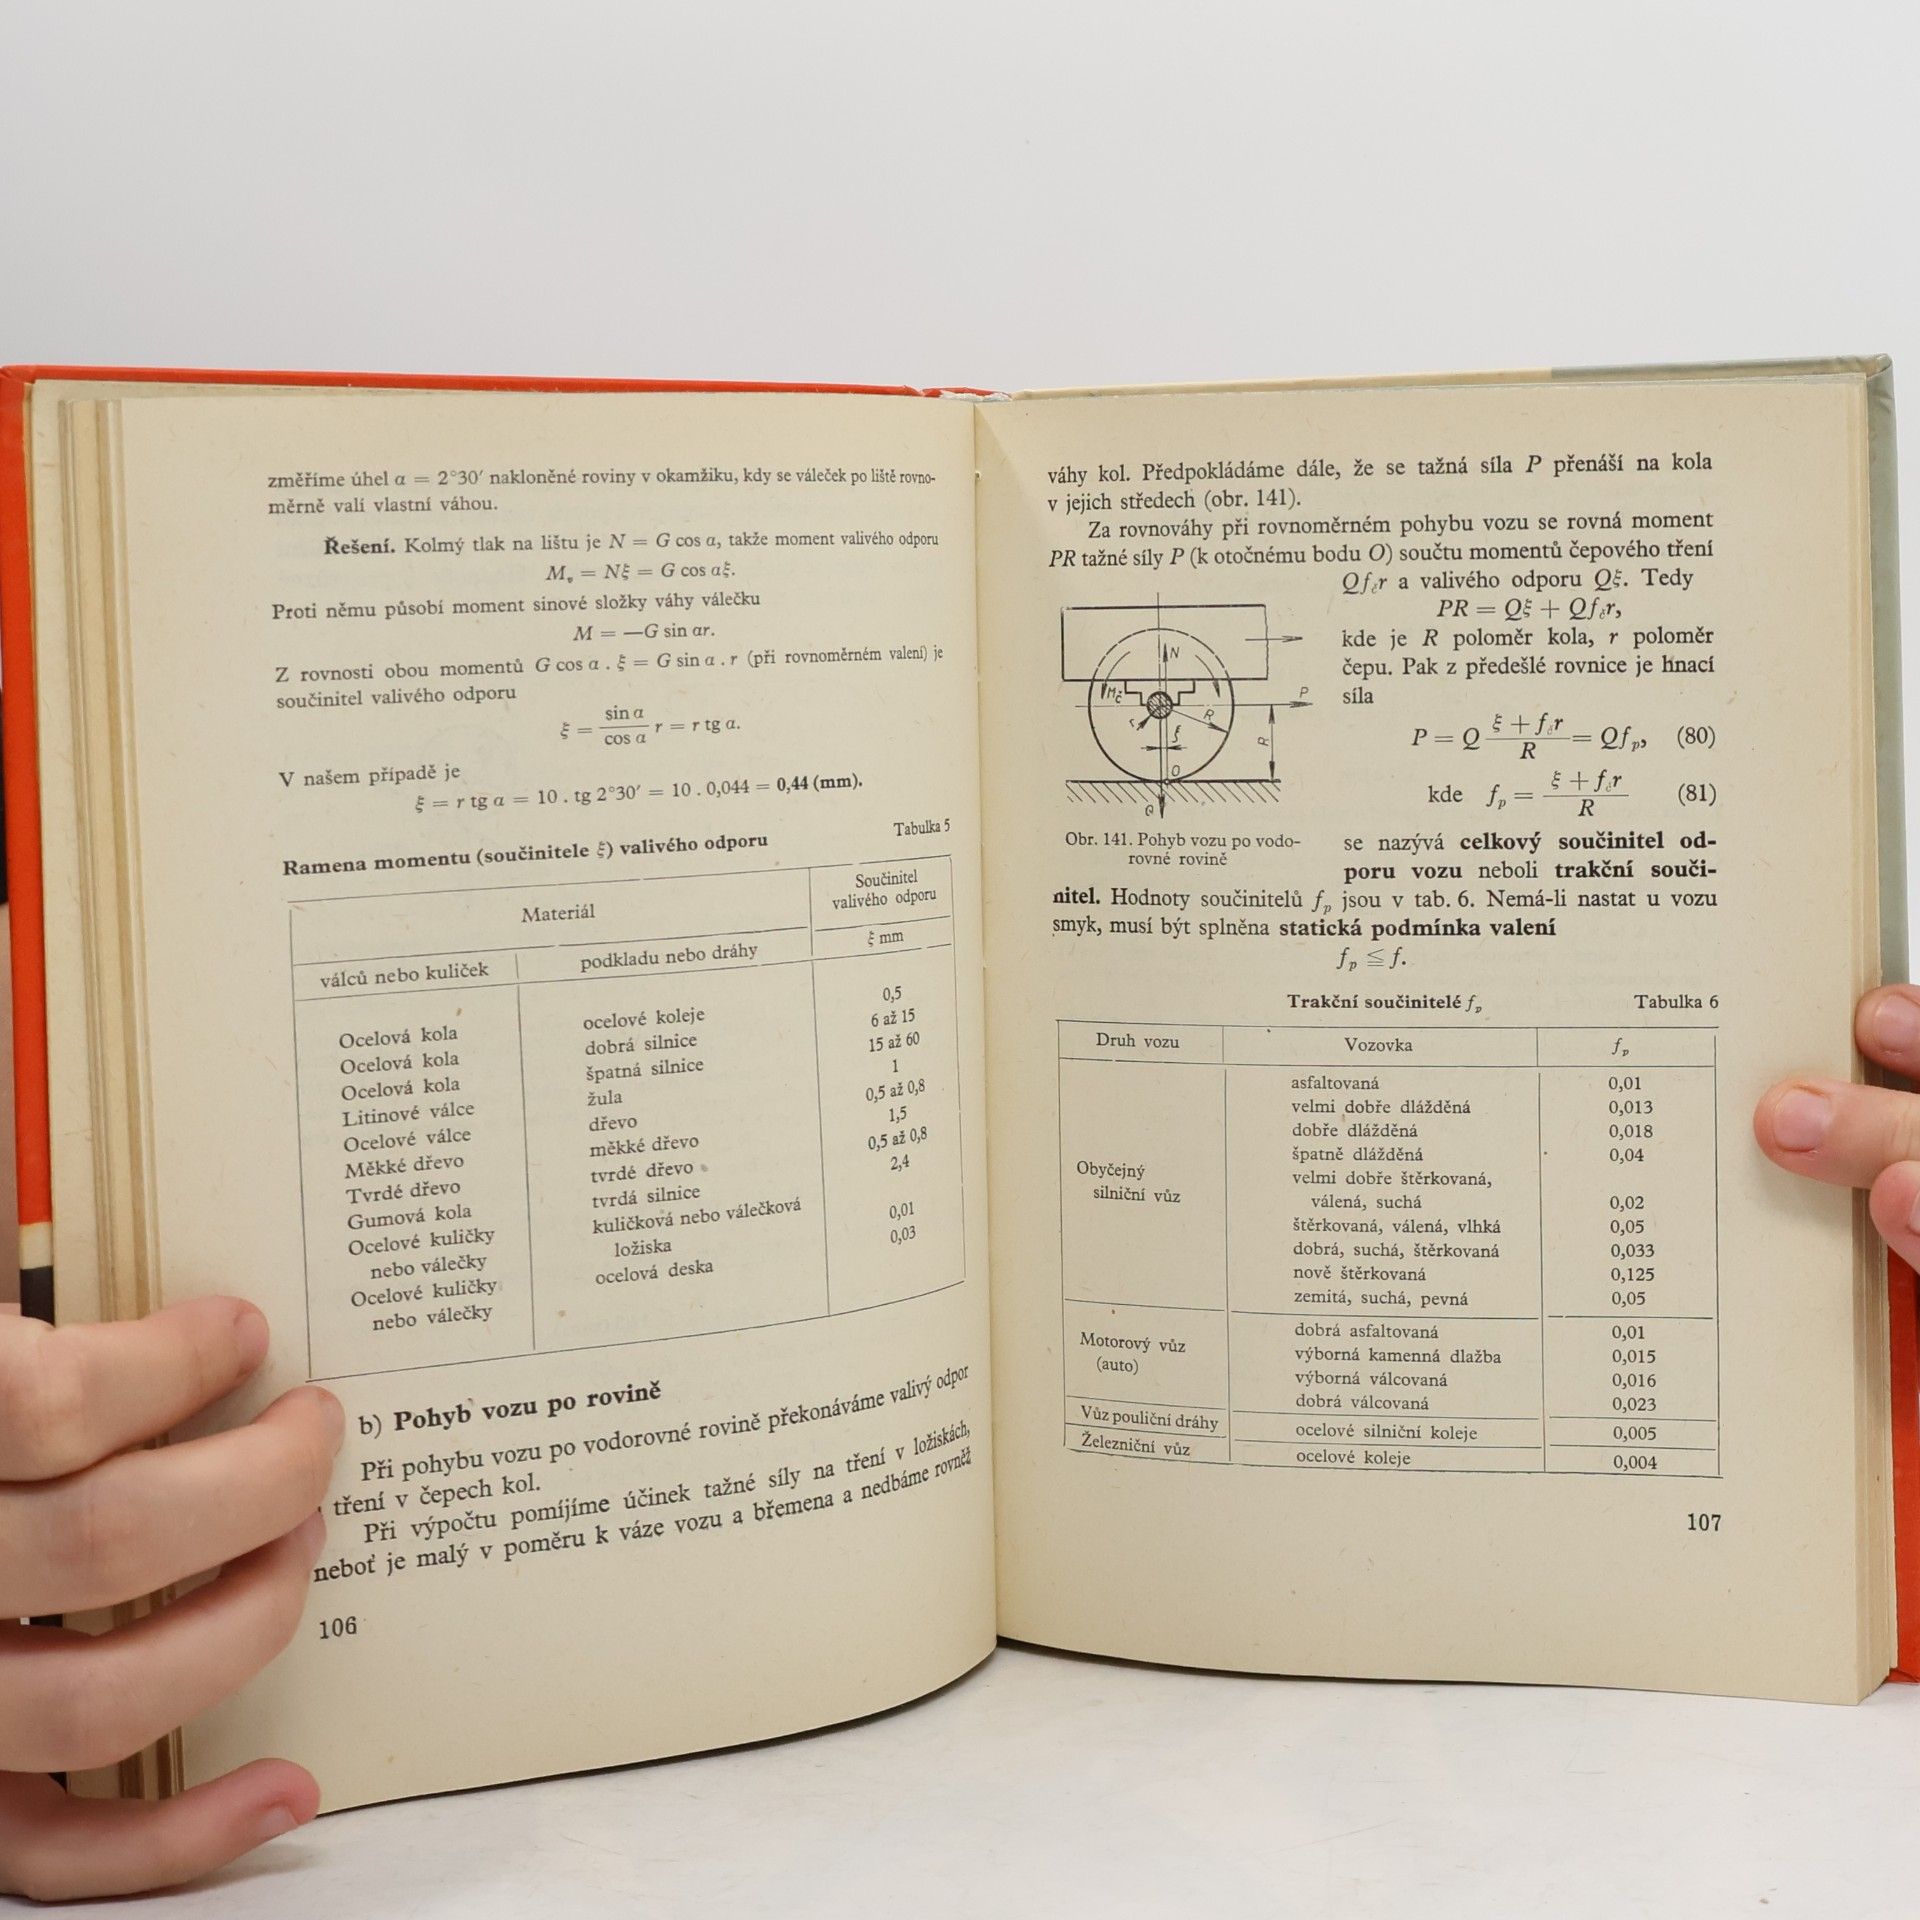 změříme úhel α = 2°30′ nakloněné roviny v okamžiku, kdy se váleček po liště rovno-
měrně valí vlastní váhou.
Řešení. Kolmý tlak na lištu je N = G cos α, takže moment valivého odporu
Mᵥ = Nξ = G cos αξ.
Proti němu působí moment sinové složky váhy válečku
M = —G sin αr.
Z rovnosti obou momentů G cos α . ξ = G sin α . r (při rovnoměrném valení) je
součinitel valivého odporu
ξ = sin α / cos α r = r tg α.
V našem případě je
ξ = r tg α = 10 . tg 2°30′ = 10 . 0,044 = 0,44 (mm).
Tabulka 5
Ramena momentu (součinitele ξ) valivého odporu
Materiál
Součinitel
valivého odporu
válců nebo kuliček
podkladu nebo dráhy
ξ mm
Ocelová kola ocelové koleje 0,5
Ocelová kola dobrá silnice 6 až 15
Ocelová kola špatná silnice 15 až 60
Litinové válce žula 1
Ocelové válce dřevo 0,5 až 0,8
Měkké dřevo měkké dřevo 1,5
Tvrdé dřevo tvrdé dřevo 0,5 až 0,8
Gumová kola tvrdá silnice 2,4
Ocelové kuličky kuličková nebo válečková
nebo válečky ložiska 0,01
Ocelové kuličky ocelová deska 0,03
nebo válečky
b) Pohyb vozu po rovině
Při pohybu vozu po vodorovné rovině překonáváme valivý odpor
tření v čepech kol.
Při výpočtu pomíjíme účinek tažné síly na tření v ložiskách,
neboť je malý v poměru k váze vozu a břemena a nedbáme rovněž
106
váhy kol. Předpokládáme dále, že se tažná síla P přenáší na kola
v jejich středech (obr. 141).
Za rovnováhy při rovnoměrném pohybu vozu se rovná moment
PR tažné síly P (k otočnému bodu O) součtu momentů čepového tření
Qf_č r a valivého odporu Qξ. Tedy
PR = Qξ + Qf_č r,
kde je R poloměr kola, r poloměr
čepu. Pak z předešlé rovnice je hnací
síla
P = Q (ξ + f_č r) / R = Qf_p, (80)
kde f_p = (ξ + f_č r) / R (81)
N
M_č
P
r
R
ξ
R
O
Q
Obr. 141. Pohyb vozu po vodo-
rovné rovině
se nazývá celkový součinitel od-
poru vozu neboli trakční souči-
nitel. Hodnoty součinitelů f_p jsou v tab. 6. Nemá-li nastat u vozu
smyk, musí být splněna statická podmínka valení
f_p ≦ f.
Trakční součinitelé f_p Tabulka 6
Druh vozu Vozovka f_p
Obyčejný
silniční vůz
asfaltovaná 0,01
velmi dobře dlážděná 0,013
dobře dlážděná 0,018
špatně dlážděná 0,04
velmi dobře štěrkovaná,
válená, suchá 0,02
štěrkovaná, válená, vlhká 0,05
dobrá, suchá, štěrkovaná 0,033
nově štěrkovaná 0,125
zemitá, suchá, pevná 0,05
Motorový vůz
(auto)
dobrá asfaltovaná 0,01
výborná kamenná dlažba 0,015
výborná válcovaná 0,016
dobrá válcovaná 0,023
Vůz pouliční dráhy ocelové silniční koleje 0,005
Železniční vůz ocelové koleje 0,004
107